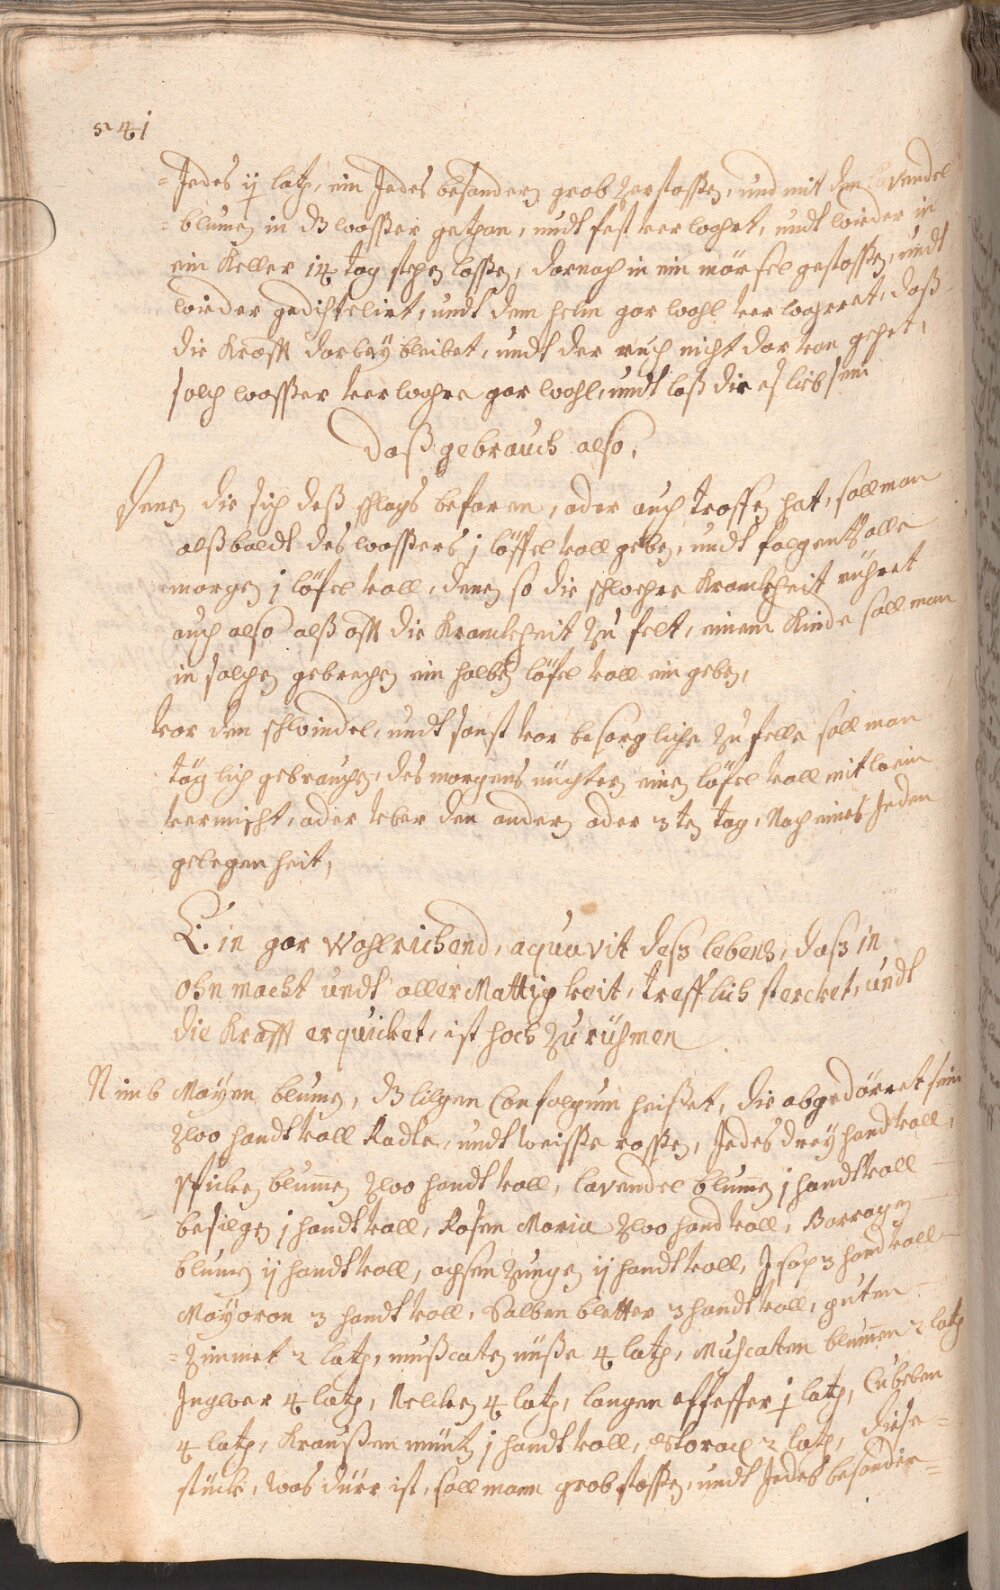 541
= Jedes ij loth, ein Jedes besondern grob zerstossen, und mit den lavendel
= blumen in dz wasser gethan, undt fest verwahrt, undt wieder in
ein Keller 14 tag stehen lassen, darnach in ein mörsel gestossen, undt
wieder gedistelirt, undt dem helm gar wohl verwahret, daß
die Krafft darbey bleibet, undt der ruch nicht darvon gehet,
solch wasser verwahre gar wohl, undt laß dir es lieb sein
daß gebrauch also,
Denen die sich deß schlags befaren, oder auch troffen hat, soll man
alßbaldt des wassers j löffel voll geben, undt folgents alle
morgen j löfel voll, denen so die schwehre Kranckheit rühret
auch also alß offt die Kranckheit zu felt, einem Kinde soll man
in solchen gebrechen ein halben löfel voll ein geben,
vor den schwindel, undt sonst vor besorgliche zu felle soll man
täglich gebrauchen, des morgens nüchtern einen löfel voll mit wein
vermischt, oder uber den andern oder 3ten tag, Nach eines Jeden
gelegenheit,
Ein gar Wohlrichend, aquavit deß lebens, daß in
ohnmacht undt aller Mattigkeit, trefflich stercket, undt
die Krafft erquicket, ist hoch zu rühmen
Nimb Mayen blumen, dz lilgen Confalgium heisset, die abgedörret sein
zwo handt voll Radte, undt weisse rossen, Jedes drey handt voll,
spicken blumen zwo handt voll, lavendel blumen j handt voll
besilgen j handt voll, Rosen Maria zwo hand voll, Borragen
blumen ij handt voll, ochsen zungen ij handt voll, Isop 3 hand voll
Mayoron 3 handt voll, Salben bletter 3 handt voll, guten
= Zimmet 2 loth, mußcaten nüße 4 loth, Muscaten blumen 2 loth
Ingwer 4 loth, Nelcken 4 loth, langen Pfeffer j loth, Cubeben
4 loth, Kraußen müntz j handt voll, Storach 2 loth, diese =
stücke, was dürr ist, soll mann grob stossen, undt Jedes besonder =